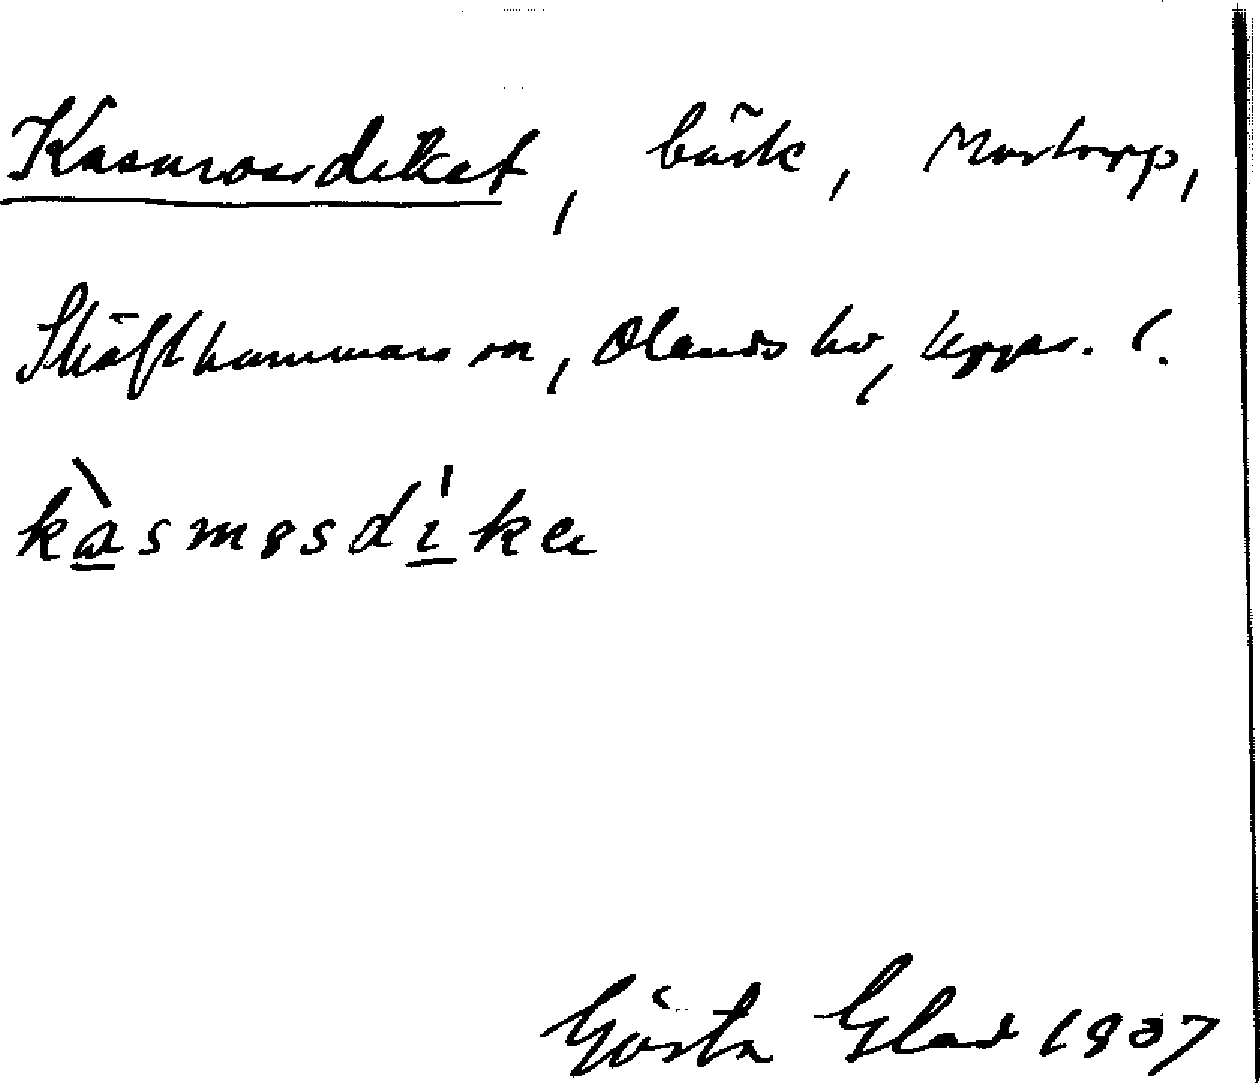 Kasmosdiket, bäck, Mortorp,
Skäfthammars sn, Olands hd, Upps. l.
kàsmɵsdíkɑ
Gösta Glad 1937